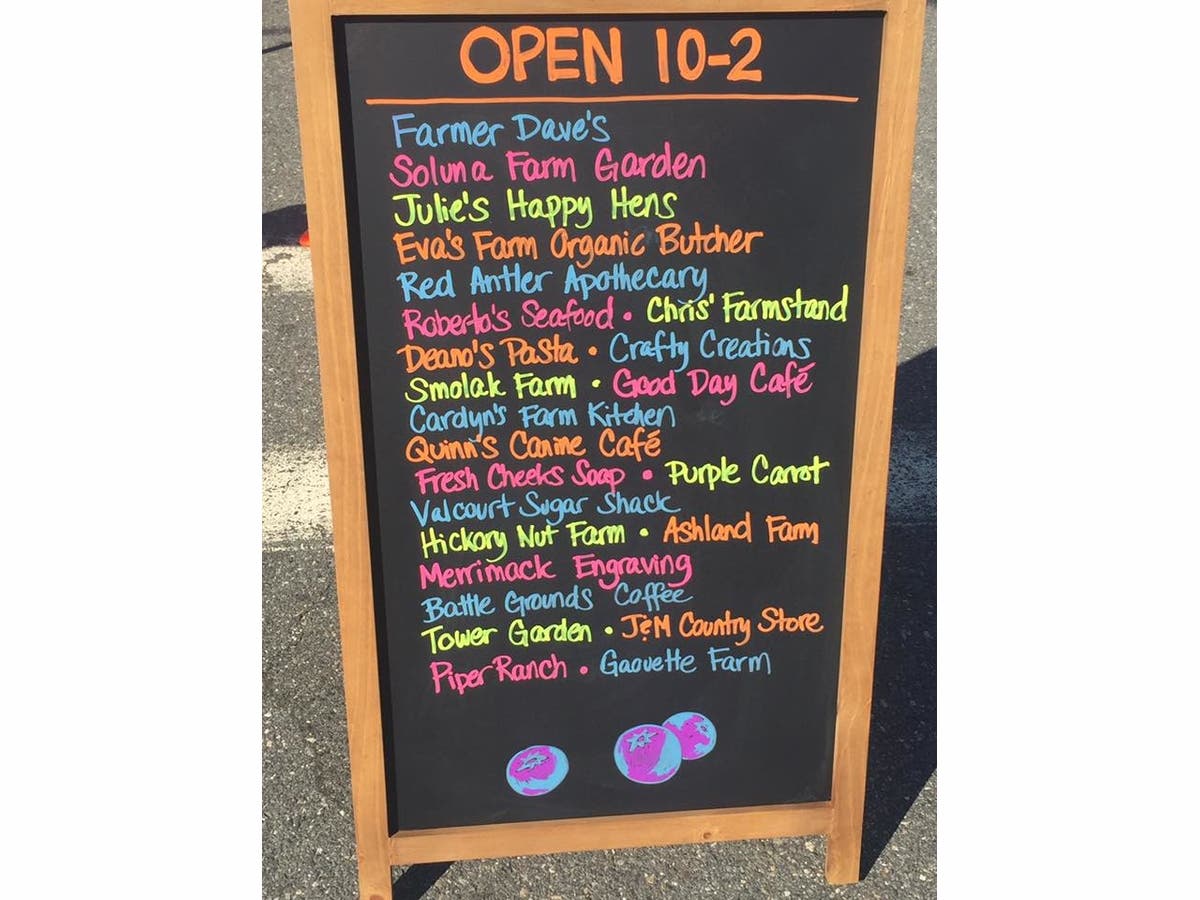 OPEN 10-2
Farmer Dave's
Soluna Farm Garden
Julie's Happy Hens
Eva's Farm Organic Butcher
Red Antler Apothecary
Roberto's Seafood • Chris' Farmstand
Deano's Pasta • Crafty Creations
Smolak Farm • Good Day Café
Carolyn's Farm Kitchen
Quinn's Canine Café
Fresh Cheeks Soap • Purple Carrot
Valcourt Sugar Shack
Hickory Nut Farm • Ashland Farm
Merrimack Engraving
Battle Grounds Coffee
Tower Garden • J&M Country Store
Piper Ranch • Gaouette Farm